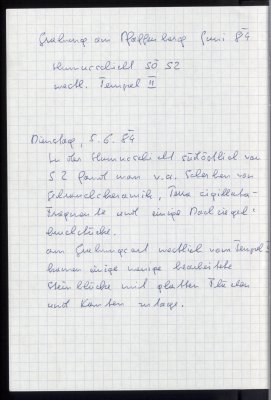 Grabung am Pfaffenberg Juni 84
Humusschicht SÖ S2
westl. Tempel II
Dienstag, 5.6.84
In der Humusschicht südöstlich von
S2 fand man v.a. Scherben von
Gebrauchskeramik, Terra sigillata-
Fragmente und einige Dachziegel-
bruchstücke.
Am Grabungsort westlich vom Tempel
kamen einige wenige bearbeitete
Steinblöcke mit glatten Flächen
und Kanten zutage.